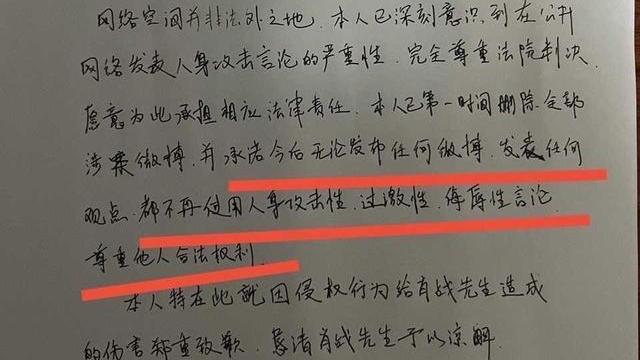 网络空间并非法外之地.本人已深刻意识到在公开
网络发表人身攻击言论的严重性.完全尊重法院判决.
愿意为此承担相应法律责任.本人已第一时间删除全部
涉案微博.并承诺今后无论发布任何微博.发表任何
观点.都不再使用人身攻击性.过激性.侮辱性言论.
尊重他人合法权利.
本人特在此就因侵权行为给肖战先生造成
的伤害郑重致歉.恳请肖战先生予以谅解.